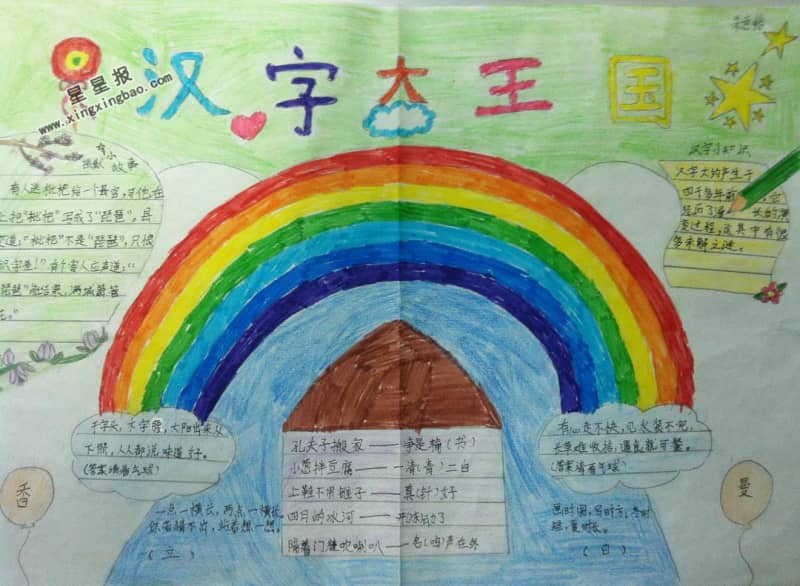 星星报
www.xingxingbao.com
汉字大王国
有小
故事
有人送枇杷给一个县官,可他在
上把"枇杷"写成了"琵琶",县
道:"枇杷"不是"琵琶",只恨
识字差!"有个客人应声道:"
琵琶"能结果,满城箫管
花。"
汉字小知识
汉字大约产生于
四千多年前
经历了漫长的演
变过程,这其中有很
多未解之谜。
千字头,木字腰,太阳出来从
下照,人人都说味道好。
(答案请看气球)
香
一点一横长,两点一横长,
你若猜不出,站着想一想。
(立)
孔夫子搬家——净是输(书)
小葱拌豆腐——一清(青)二白
上鞋不用锥子——真(针)好
四月的冰河——开冻了
隔着门缝吹喇叭——名(鸣)声在外
有心走不快,见水装不完,
长草难收拾,遇食就可餐。
(答案请看气球)
曼
画时圆,写时方,冬时
短,夏时长。
(日)